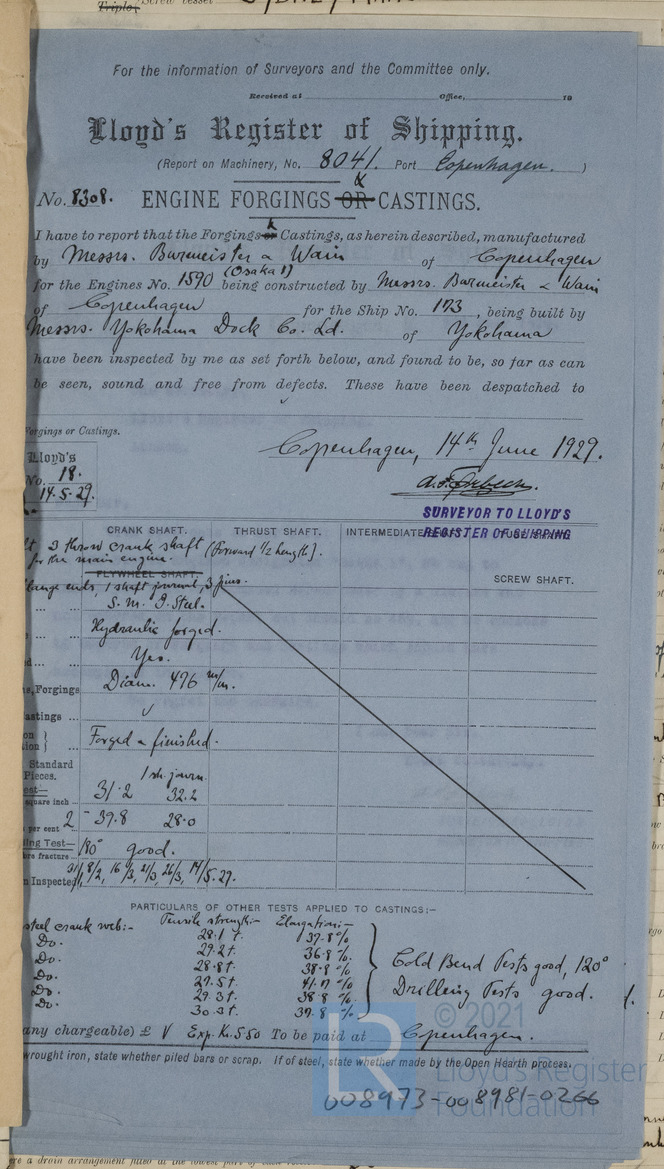 Triple, Screw vessel
For the information of Surveyors and the Committee only.
Received at Office, 19
Lloyd's Register of Shipping.
(Report on Machinery, No. 8041. Port Copenhagen.)
No. 8308. ENGINE FORGINGS OR CASTINGS.
I have to report that the Forgings or Castings, as herein described, manufactured
by Messrs. Burmeister & Wain of Copenhagen
(Osaka 1)
for the Engines No. 1590 being constructed by Messrs. Burmeister & Wain
of Copenhagen for the Ship No. 173, being built by
Messrs. Yokohama Dock Co. Ld. of Yokohama
have been inspected by me as set forth below, and found to be, so far as can
be seen, sound and free from defects. These have been despatched to
Forgings or Castings.
Copenhagen, 14th June 1929.
Lloyd's
No. 18.
14.5.29.
SURVEYOR TO LLOYD'S
REGISTER OF SHIPPING
CRANK SHAFT. THRUST SHAFT. INTERMEDIATE
3 throw crank shaft (Forward 1/2 length).
for the main engine.
FLYWHEEL SHAFT. SCREW SHAFT.
flange ends, 1 shaft journal, 3 pins.
S. M. I. Steel.
Hydraulic forged.
Yes.
Forgings Diam. 476 m/m.
Castings
Forged & finished.
Standard
Pieces. 1 sh. journ.
square inch 31.2 32.2
per cent 2 - 39.8 28.0
Test— 180° good.
fracture
Inspected 8/2, 16/3, 21/3, 26/3, 14/5.29.
PARTICULARS OF OTHER TESTS APPLIED TO CASTINGS:—
steel crank web:- Tensile strength:- Elongation:-
Do. 28.1 t. 37.8 %
Do. 29.2 t. 36.8 %
Do. 28.8 t. 38.8 %
Do. 27.5 t. 41.7 %
Do. 29.3 t. 38.8 %
Do. 30.3 t. 37.8 %
Cold Bend Tests good, 120°
Drilling Tests good.
any chargeable) £ Exp. Kr. 5.50 To be paid at Copenhagen.
wrought iron, state whether piled bars or scrap. If of steel, state whether made by the Open Hearth process.
LR © 2021
Lloyd's Register
Foundation
008973-008981-0266